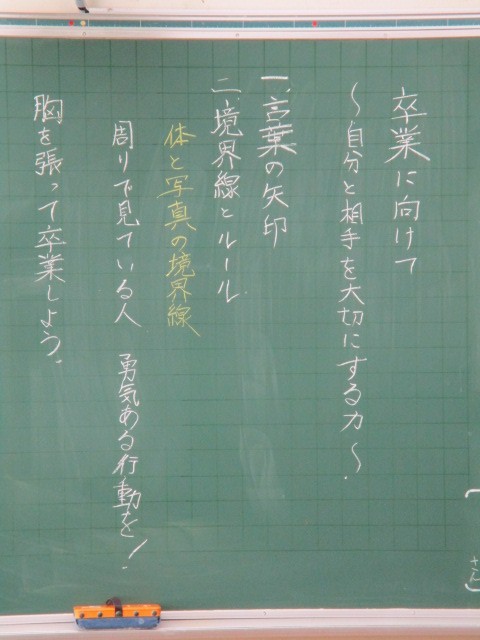 卒業に向けて
～自分と相手を大切にする力～.
一、言葉の矢印
二、境界線とルール
体と写真の境界線
周りで見ている人 勇気ある行動を!
胸を張って卒業しよう。
さん